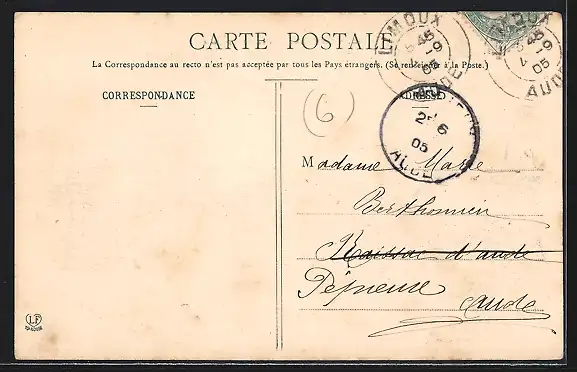 CARTE POSTALE
La Correspondance au recto n'est pas acceptée par tous les Pays étrangers. (Se renseigner à la Poste.)
CORRESPONDANCE
ADRESSE
LIMOUX
5 45
1 9
05
AUDE
LIMOUX
5 45
1 9
05
AUDE
2 6
05
AUDE
(6)
Madame Marie
Berthomieu
Raissac d'aude
Pépieux
aude
LF